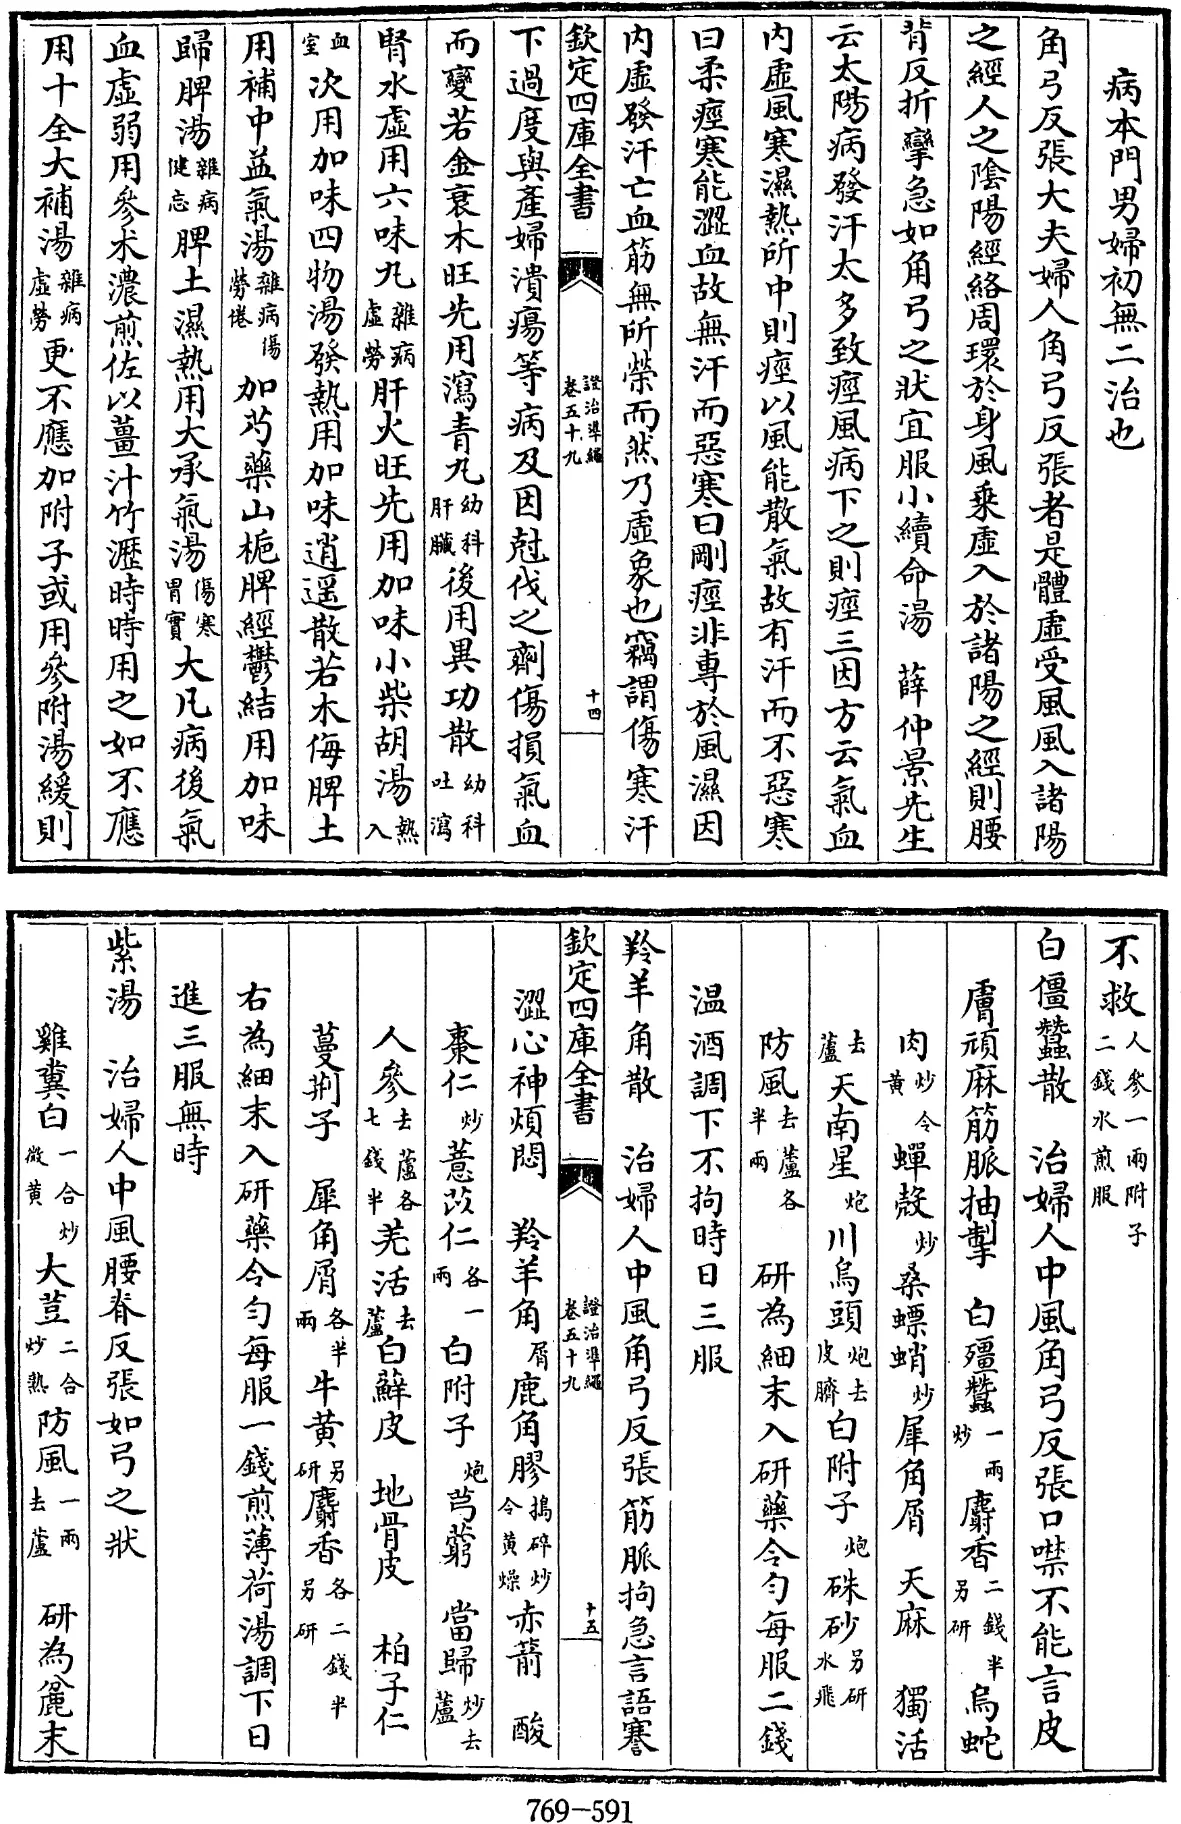 病本門男婦初無二治也
角弓反張大夫婦人角弓反張者是體虛受風風入諸陽
之經人之陰陽經絡周環於身風乘虛入於諸陽之經則腰
背反折攣急如角弓之狀宜服小續命湯　薛仲景先生
云太陽病發汗太多致痙風病下之則痙三因方云氣血
內虛風寒濕熱所中則痙以風能散氣故有汗而不惡寒
曰柔痙寒能澀血故無汗而惡寒曰剛痙非專於風濕因
內虛發汗亡血筋無所榮而然乃虛象也竊謂傷寒汗
欽定四庫全書　證治準繩卷五十九　十四
下過度與產婦潰瘍等病及因尅伐之劑傷損氣血
而變若金衰木旺先用瀉青丸幼科肝臟後用異功散幼科吐瀉
腎水虛用六味丸雜病虛勞肝火旺先用加味小柴胡湯熱入
血室次用加味四物湯發熱用加味逍遥散若木侮脾土
用補中益氣湯雜病傷勞倦加芍藥山梔脾經鬱結用加味
歸脾湯雜病健忘脾土濕熱用大承氣湯傷寒胃實大凡病後氣
血虛弱用參术濃煎佐以薑汁竹瀝時時用之如不應
用十全大補湯雜病虛勞更不應加附子或用參附湯緩則
不救人參一兩附子二錢水煎服
白僵蠶散　治婦人中風角弓反張口噤不能言皮
膚頑麻筋脈抽掣　白殭蠶一兩炒麝香二錢半另研烏蛇
肉炒令黃蟬殼炒桑螵蛸炒犀角屑　天麻　獨活
去蘆天南星炮川烏頭炮去皮臍白附子炮硃砂另研水飛
防風去蘆各半兩　研為細末入研藥令勻每服二錢
温酒調下不拘時日三服
羚羊角散　治婦人中風角弓反張筋脈拘急言語謇
欽定四庫全書　證治準繩卷五十九　十五
澀心神煩悶　羚羊角屑鹿角膠搗碎炒令黃燥赤箭　酸
棗仁炒薏苡仁各一兩白附子炮芎藭　當歸炒去蘆
人參去蘆各七錢半羌活去蘆白蘚皮　地骨皮　柏子仁
蔓荆子　犀角屑各半兩牛黃另研麝香各二錢半另研
右為細末入研藥令勻每服一錢煎薄荷湯調下日
進三服無時
紫湯　治婦人中風腰脊反張如弓之狀
雞糞白一合炒微黃大荳二合炒熟防風一兩去蘆　研為麄末
769-591